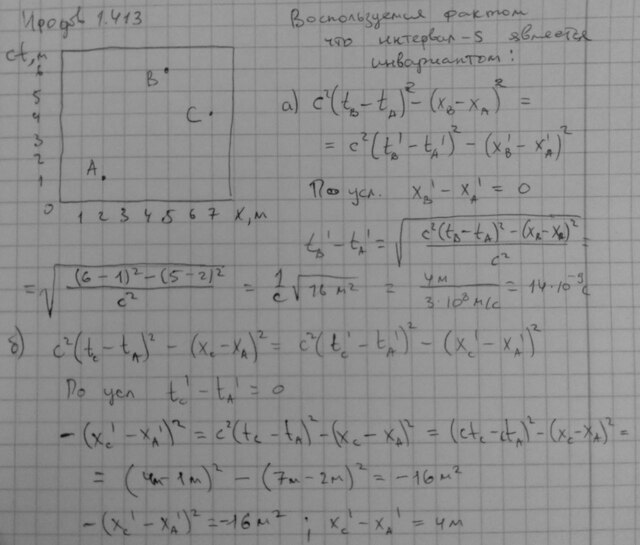 Иродов 1.413
Воспользуемся фактом
что интервал - S является
инвариантом:
ct, м
6
5
4
3
2
1
0
B
C
A
1 2 3 4 5 6 7 X, м
а) c²(t_B - t_A)² - (x_B - x_A)² =
= c²(t_B' - t_A')² - (x_B' - x_A')²
По усл. x_B' - x_A' = 0
t_B' - t_A' = √((c²(t_B - t_A)² - (x_B - x_A)²)/c²) =
= √(((6-1)² - (5-2)²)/c²) = 1/c √(16 м²) = 4м/(3·10⁸ м/с) = 14·10⁻⁹ с
б) c²(t_C - t_A)² - (x_C - x_A)² = c²(t_C' - t_A')² - (x_C' - x_A')²
По усл t_C' - t_A' = 0
-(x_C' - x_A')² = c²(t_C - t_A)² - (x_C - x_A)² = (ct_C - ct_A)² - (x_C - x_A)² =
= (4м - 1м)² - (7м - 2м)² = -16 м²
-(x_C' - x_A')² = -16 м² ; x_C' - x_A' = 4м